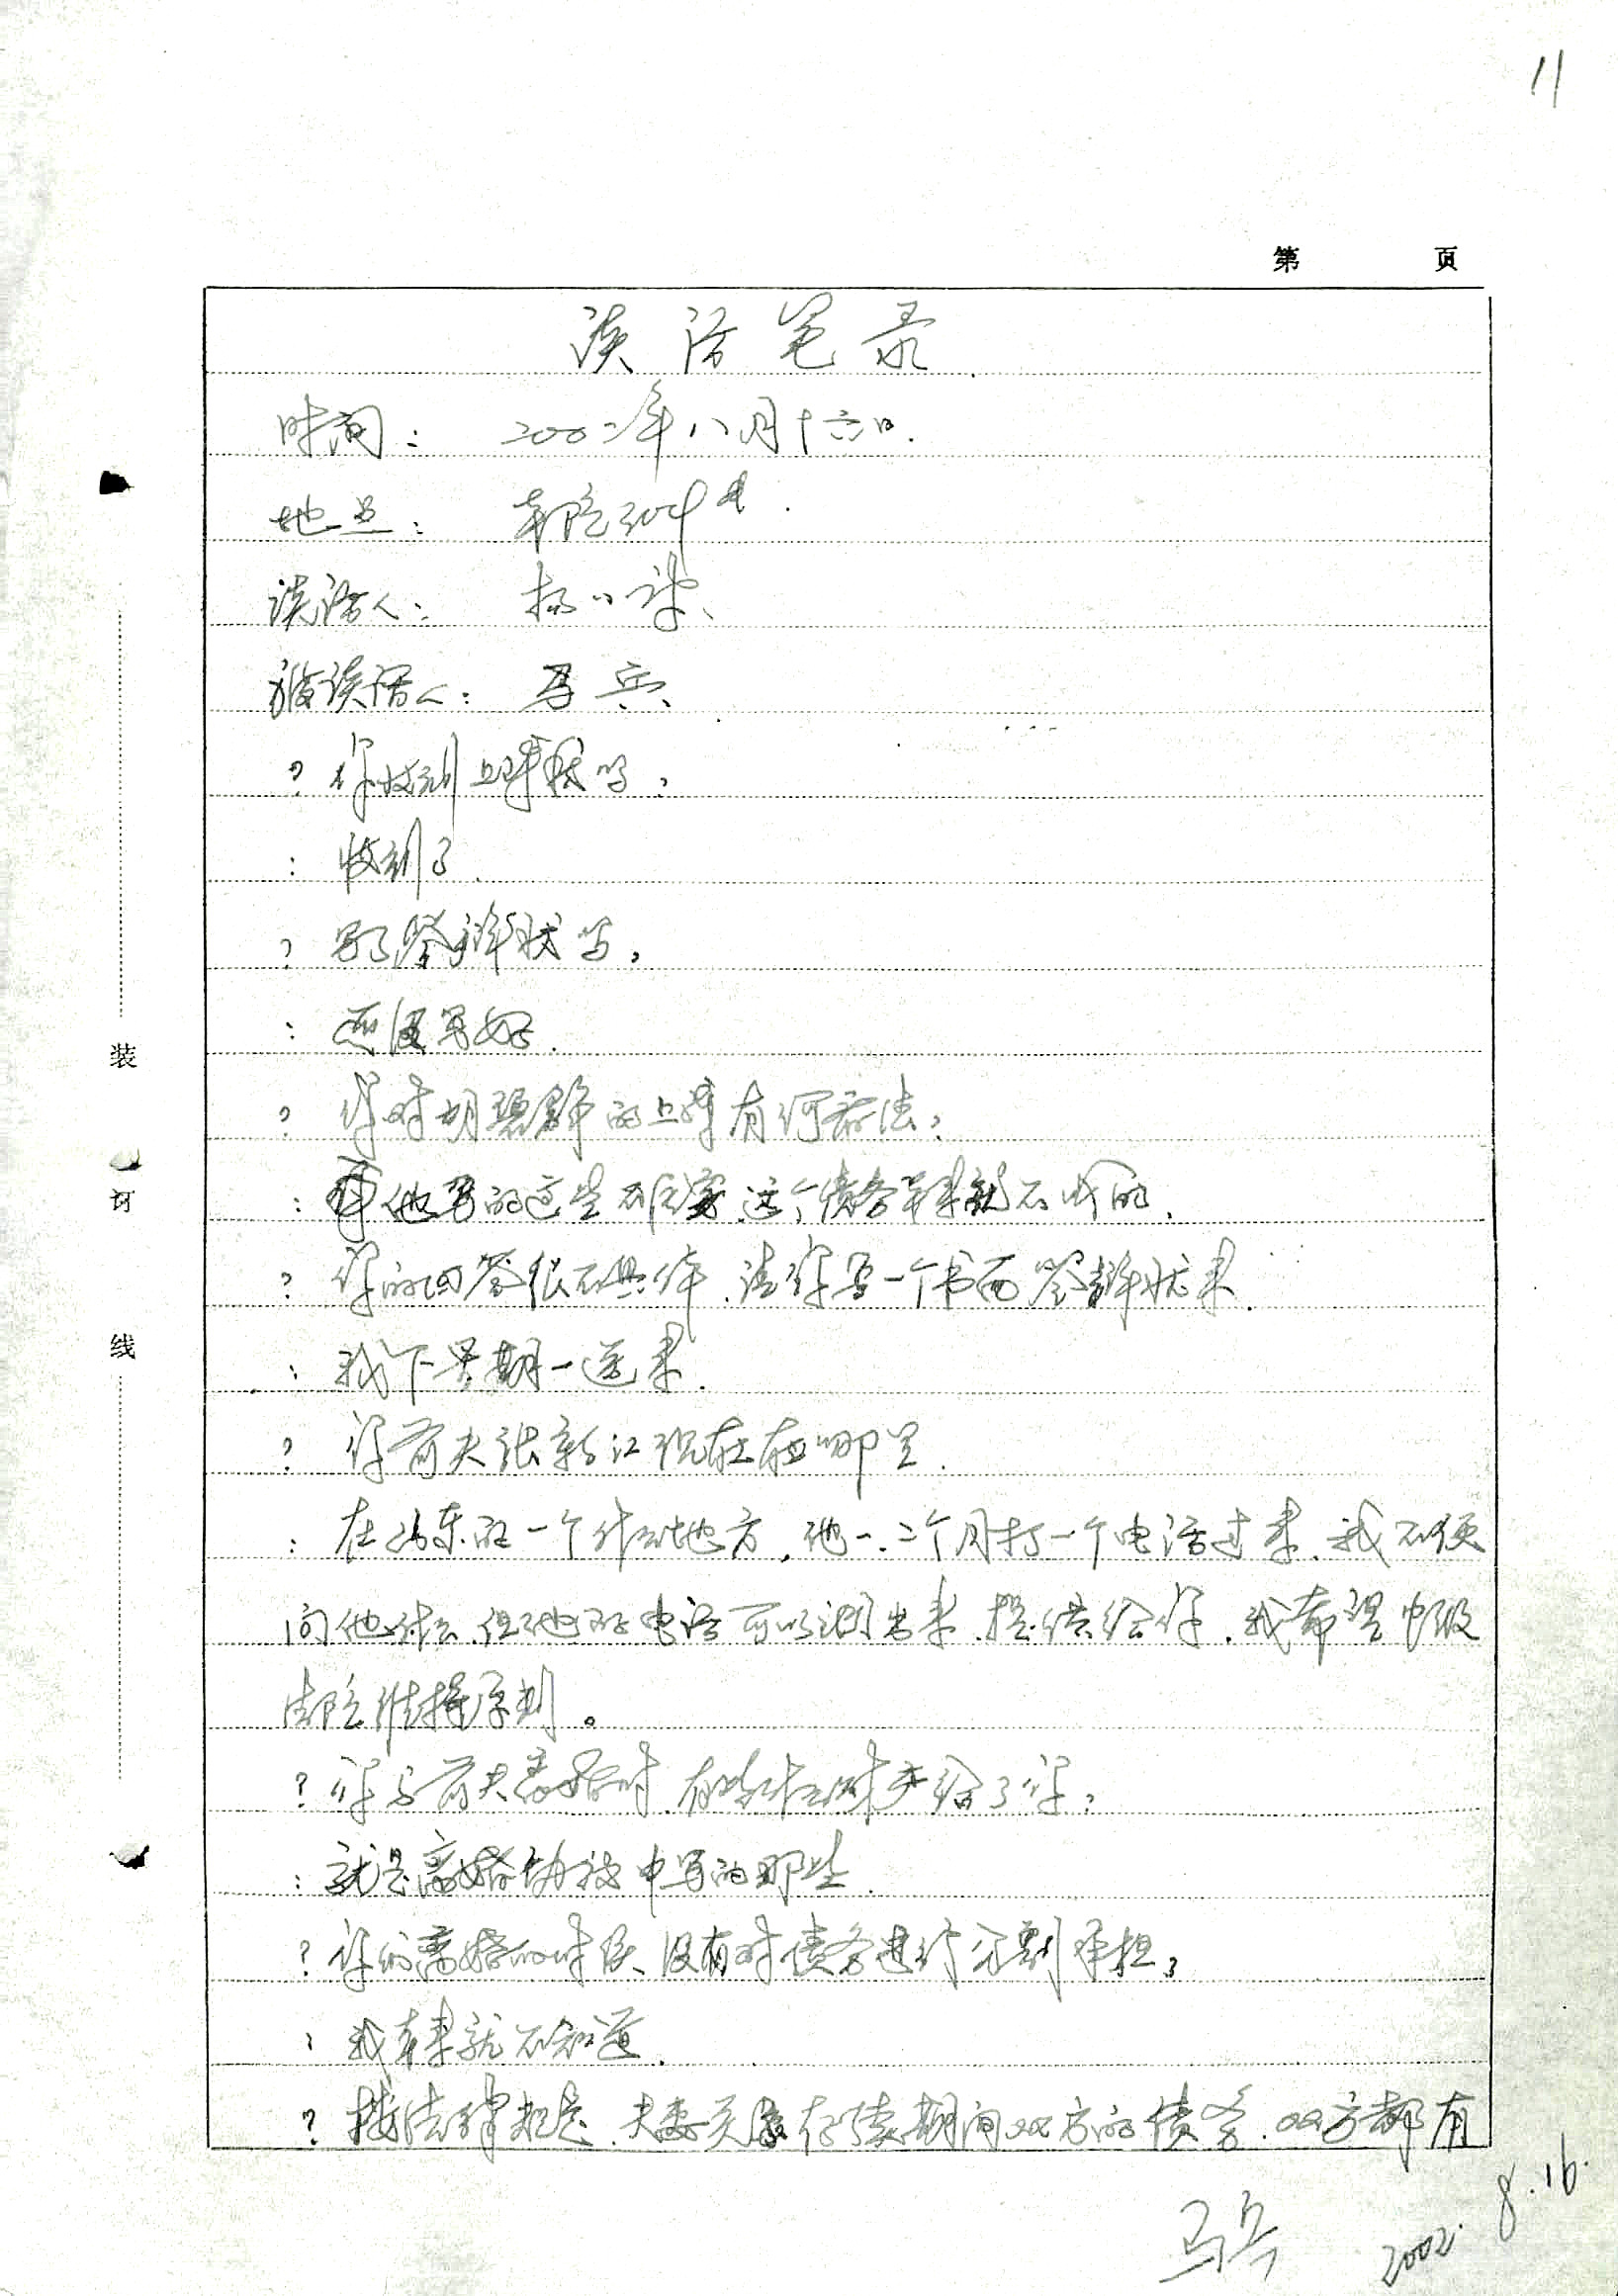 11
第 页
谈话笔录
时间： 2002年八月十六日.
地点： 本院304室.
谈话人： 杨
被谈话人： 马兵、
？ 你收到上诉状吗？
： 收到了.
？ 写了答辩状吗？
： 还没写好.
？ 你对胡碧静的上诉有何看法？
： 他写的这些不属实.这个债务本来就不成的.
？ 你的回答很不具体.请你写一个书面答辩状来.
： 我下星期一送来.
？ 你前夫张新江现在在哪里.
： 在山东的一个什么地方，他一.二个月打一个电话过来.我不便
问他什么.但他的电话可以调出来.提供给你.我希望中级
法院维持原判。
？ 你与前夫离婚时.有些什么财产给了你？
： 就是离婚协议中写的那些.
？ 你们离婚的时候、没有对债务进行分割承担？
： 我本来就不知道.
？ 按法律规定.夫妻关系存续期间双方的债务.双方都有
马兵 2002.8.16.
装
订
线